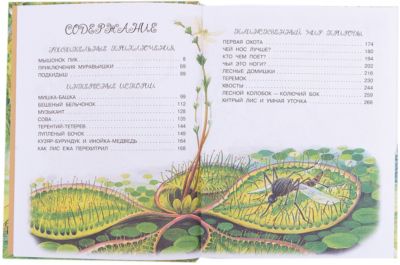 СОДЕРЖАНИЕ
УДИВИТЕЛЬНЫЕ ПРИКЛЮЧЕНИЯ
МЫШОНОК ПИК 8
ПРИКЛЮЧЕНИЯ МУРАВЬИШКИ 68
ПОДКИДЫШ 89
ИНТЕРЕСНЫЕ ИСТОРИИ
МИШКА-БАШКА 99
БЕШЕНЫЙ БЕЛЬЧОНОК 112
МУЗЫКАНТ 128
СОВА 135
ТЕРЕНТИЙ-ТЕТЕРЕВ 144
ЛУПЛЁНЫЙ БОЧОК 148
КУЗЯР-БУРУНДУК И ИНОЙКА-МЕДВЕДЬ 164
КАК ЛИС ЕЖА ПЕРЕХИТРИЛ 168
ТАИНСТВЕННЫЙ МИР ПРИРОДЫ
ПЕРВАЯ ОХОТА 174
ЧЕЙ НОС ЛУЧШЕ? 181
КТО ЧЕМ ПОЁТ? 192
ЧЬИ ЭТО НОГИ? 202
ЛЕСНЫЕ ДОМИШКИ 210
ТЕРЕМОК 230
ХВОСТЫ 244
ЛЕСНОЙ КОЛОБОК – КОЛЮЧИЙ БОК 259
ХИТРЫЙ ЛИС И УМНАЯ УТОЧКА 268